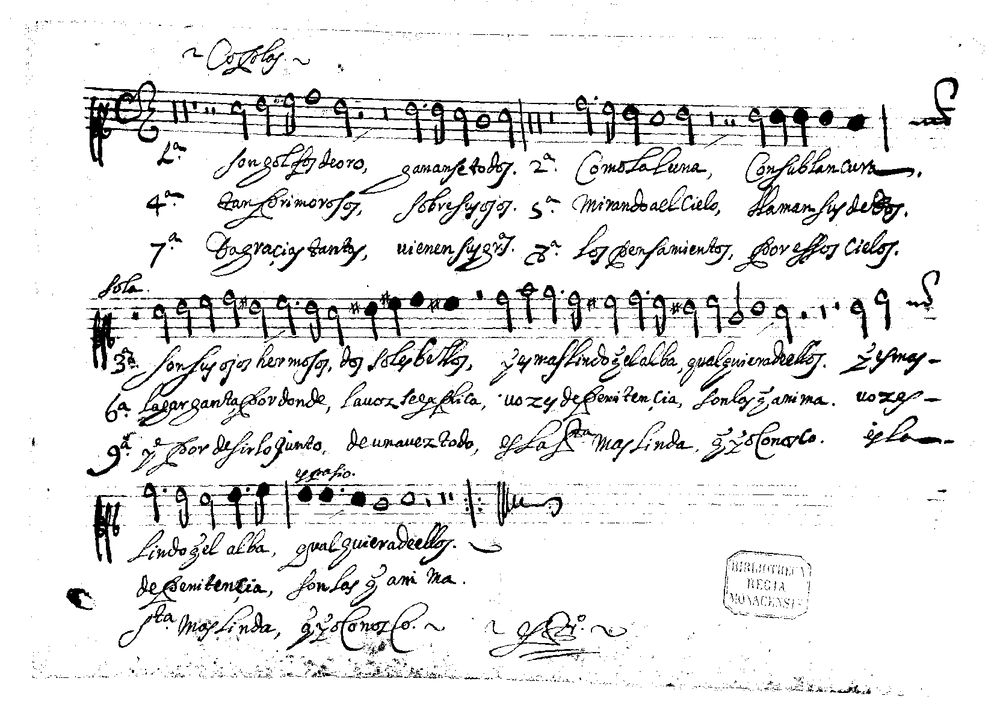 ~ Coplas ~
1ª son golfos de oro, gananse todos. 2ª Como la luna, Con su blancura.
4ª tan primorosos, sobre sus ojos. 5ª Mirando a el Cielo, llaman sus dedos.
7ª da gracias tantas, vienen sus grs. 8ª los pensamientos, por essos Cielos.
sola.
3ª son sus ojos hermosos, dos soles bellos, y es mas lindo q el alba, qualquiera de ellos. y es mas –
6ª la garganta por donde, la voz se aplica, vozes de penitençia, son los q anima. vozes –
9ª y por desirlo junto, de una vez todo, es la sta mas linda, q yo Conosco. es la –
espasio.
lindo q el alba, qualquiera de ellos.
de penitençia, son las q ani ma.
sta mas linda, q yo Conosco. ~
BIBLIOTHECA
REGIA
MONACENSIS